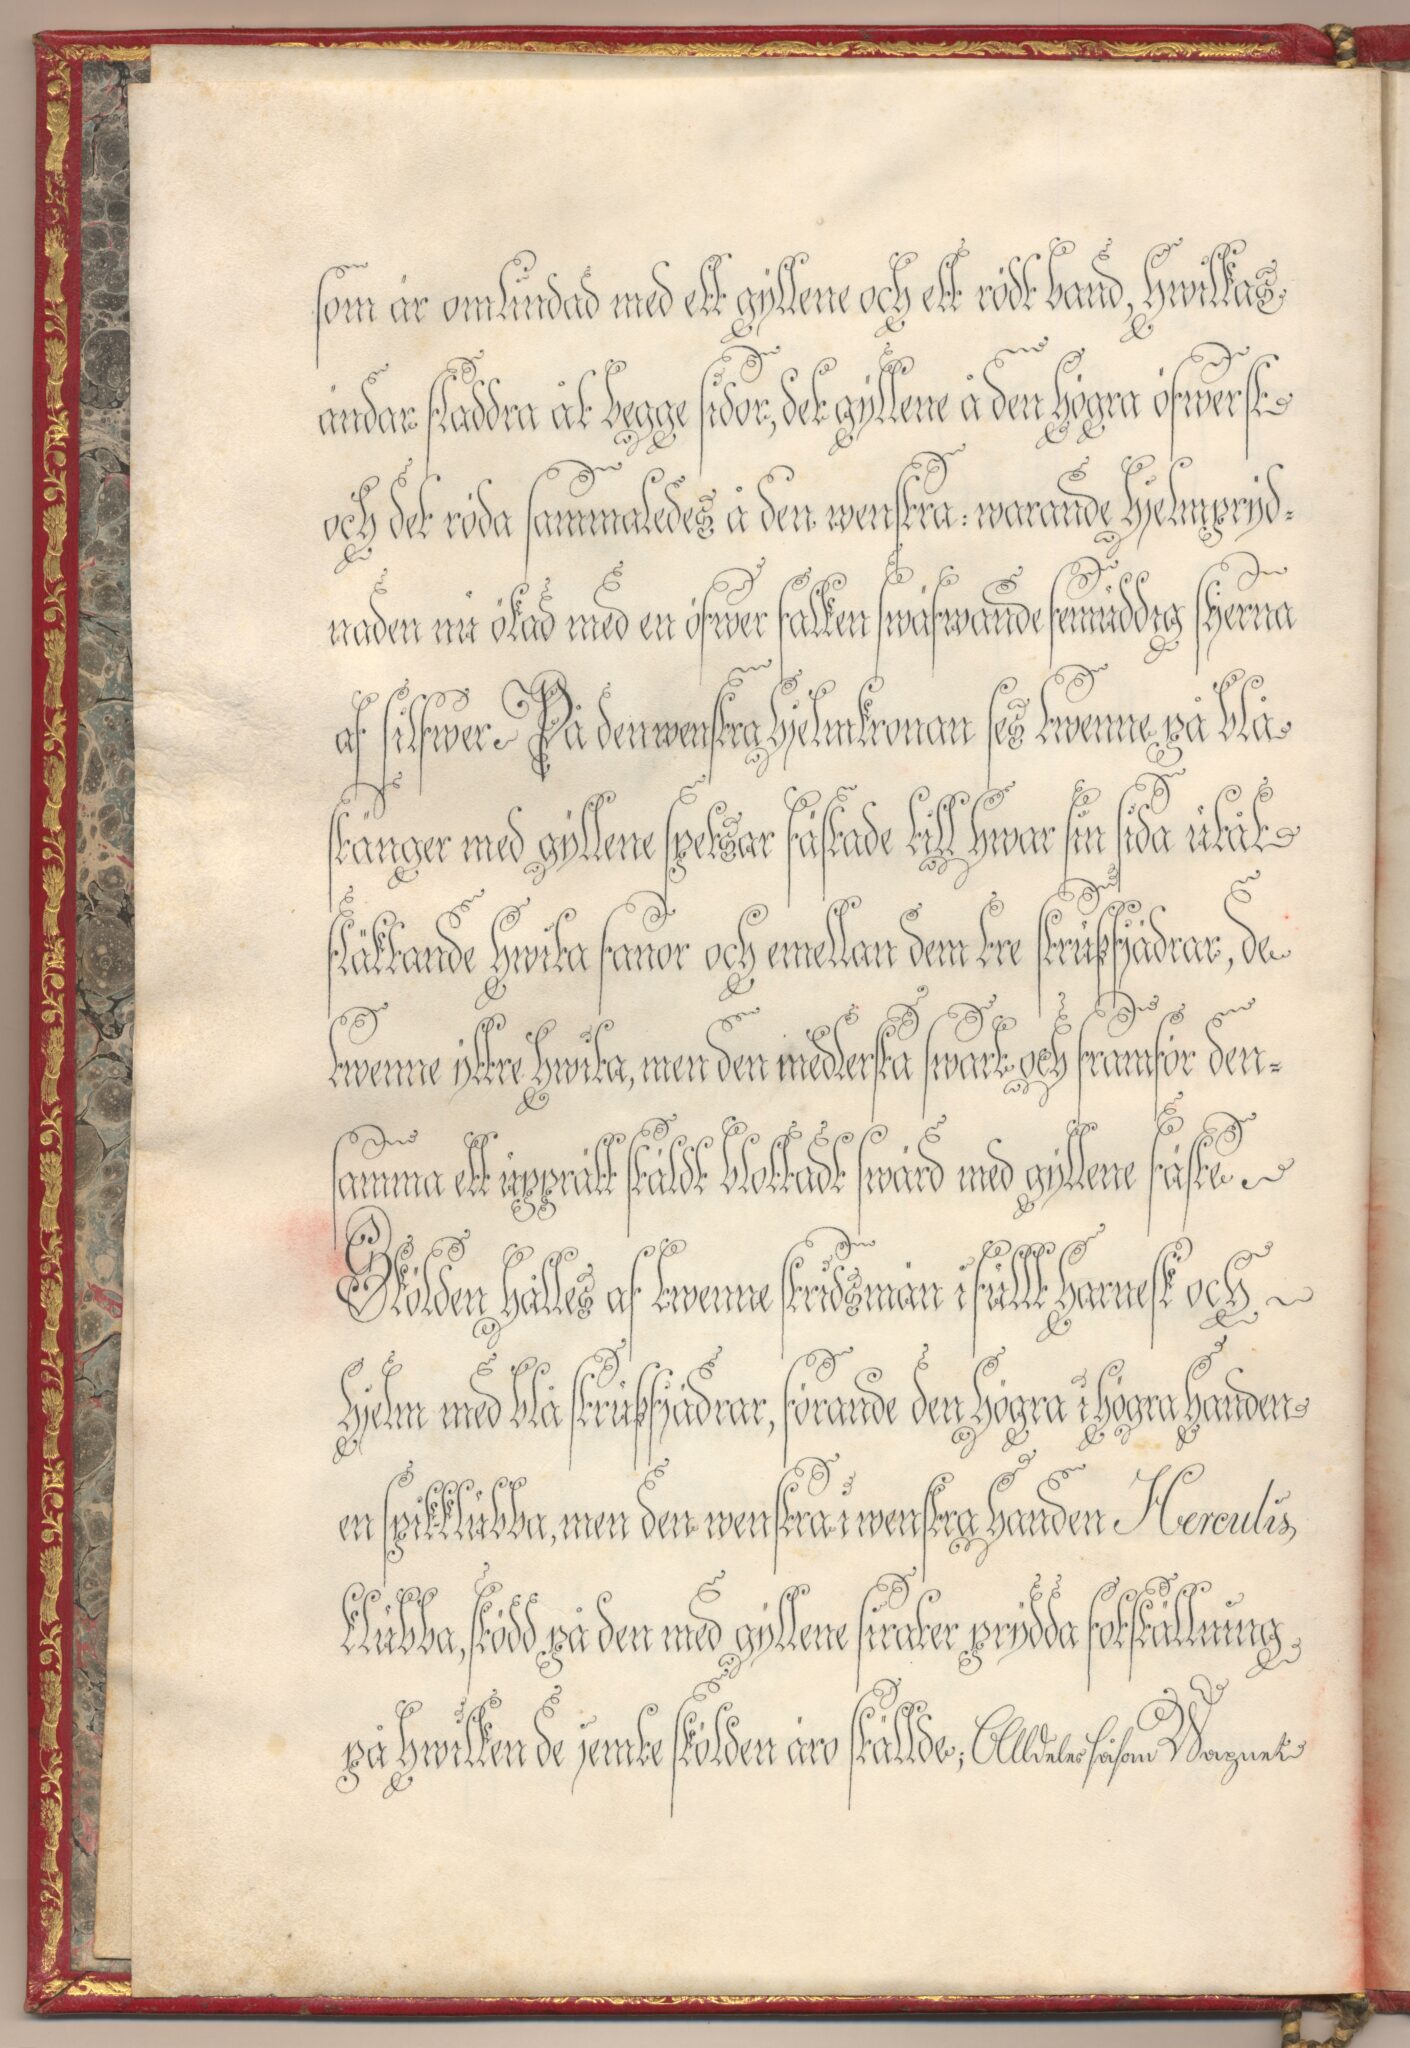 som är omlindad med ett gyllene och ett rödt band, hwilkas
ändar fladdra åt begge sidor, det gyllene å den högra öfwerst
och det röda sammaledes å den wenstra: warande hjelmpryd-
naden nu ökad med en öfwer falken swäfwande femuddig stjerna
af silfwer. På den wenstra hjelmkronan ses twenne på blå
stänger med gyllene spetsar fästade till hwar sin sida utåt
fläktande hwita fanor och emellan dem tre strutsfjädrar, de
twenne yttre hwita, men den medlersta swart och framför den-
samma ett upprätt stäldt blottadt swärd med gyllene fäste.
Skölden hålles af twenne stridsmän i fullt harnesk och
hjelm med blå strutsfjädrar, förande den högra i högra handen
en spikklubba, men den wenstra i wenstra handen Herculis
klubba, stödd på den med gyllene sirater prydda fotställning
på hwilken de jemte skölden äro stälde; Alldeles såsom Wapnet